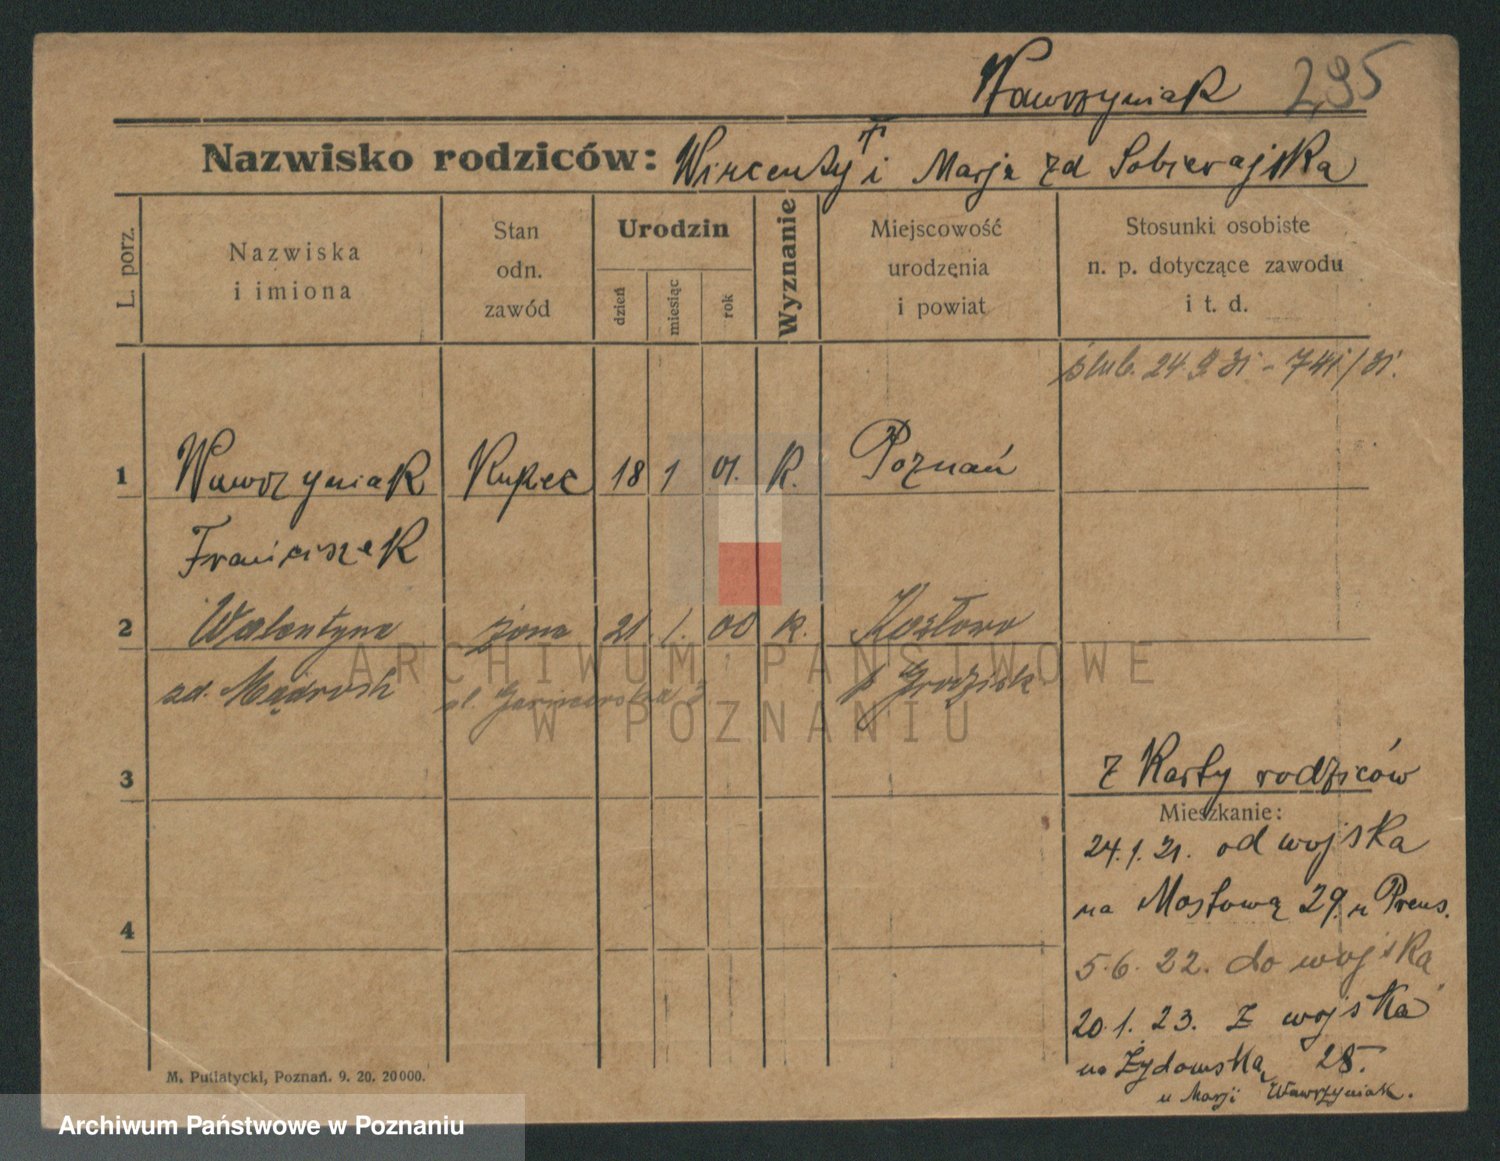 Wawrzyniak 295
Nazwisko rodziców: Wincenty † i Marja zd Sobierajska
L. porz.
Nazwiska
i imiona
Stan
odn.
zawód
Urodzin
dzień
miesiąc
rok
Wyznanie
Miejscowość
urodzenia
i powiat
Stosunki osobiste
n. p. dotyczące zawodu
i t. d.
ślub. 24.9.31 - 741/31.
1 Wawrzyniak Kupiec 18 1 01. K. Poznań
Franciszek
2 Walentyna żona 21. 1. 00 k. Kozłowo
zd. Mądrosh ul. 3 p Grodzisk
ARCHIWUM PAŃSTWOWE
W POZNANIU
3
z Karty rodziców
Mieszkanie:
24.1.21. od wojska
na Mostową 29 u Preus.
4
5.6.22. do wojska
20.1.23. z wojska
na Żydowską 28.
u Marji Wawrzyniak.
M. Putiatycki, Poznań. 9. 20. 20000.
Archiwum Państwowe w Poznaniu